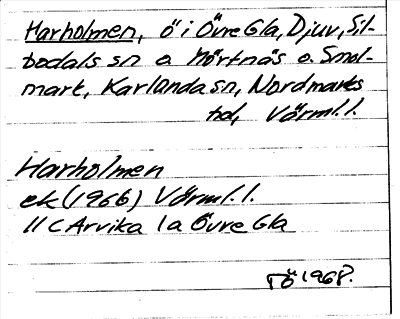 Harholmen, ö i Övre Gla, Djuv, Sil-
bodals sn o. Hörtnäs o. Smol-
mark, Karlanda sn, Nordmarks
hd, Värml. l.
Harholmen
ek (1966) Värml. l.
11 C Arvika 1 a Övre Gla
TÖ 1968.